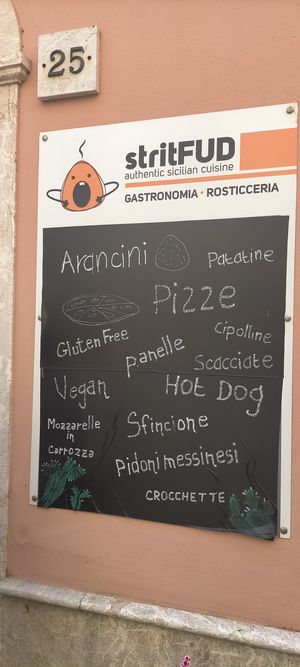 ·25·
stritFUD
authentic sicilian cuisine
GASTRONOMIA · ROSTICCERIA
Arancini
Patatine
Pizze
Gluten Free
Cipolline
Panelle
Scacciate
Vegan
HOT DOG
Mozzarelle
in
Carrozza
Sfincione
Pidoni messinesi
CROCCHETTE